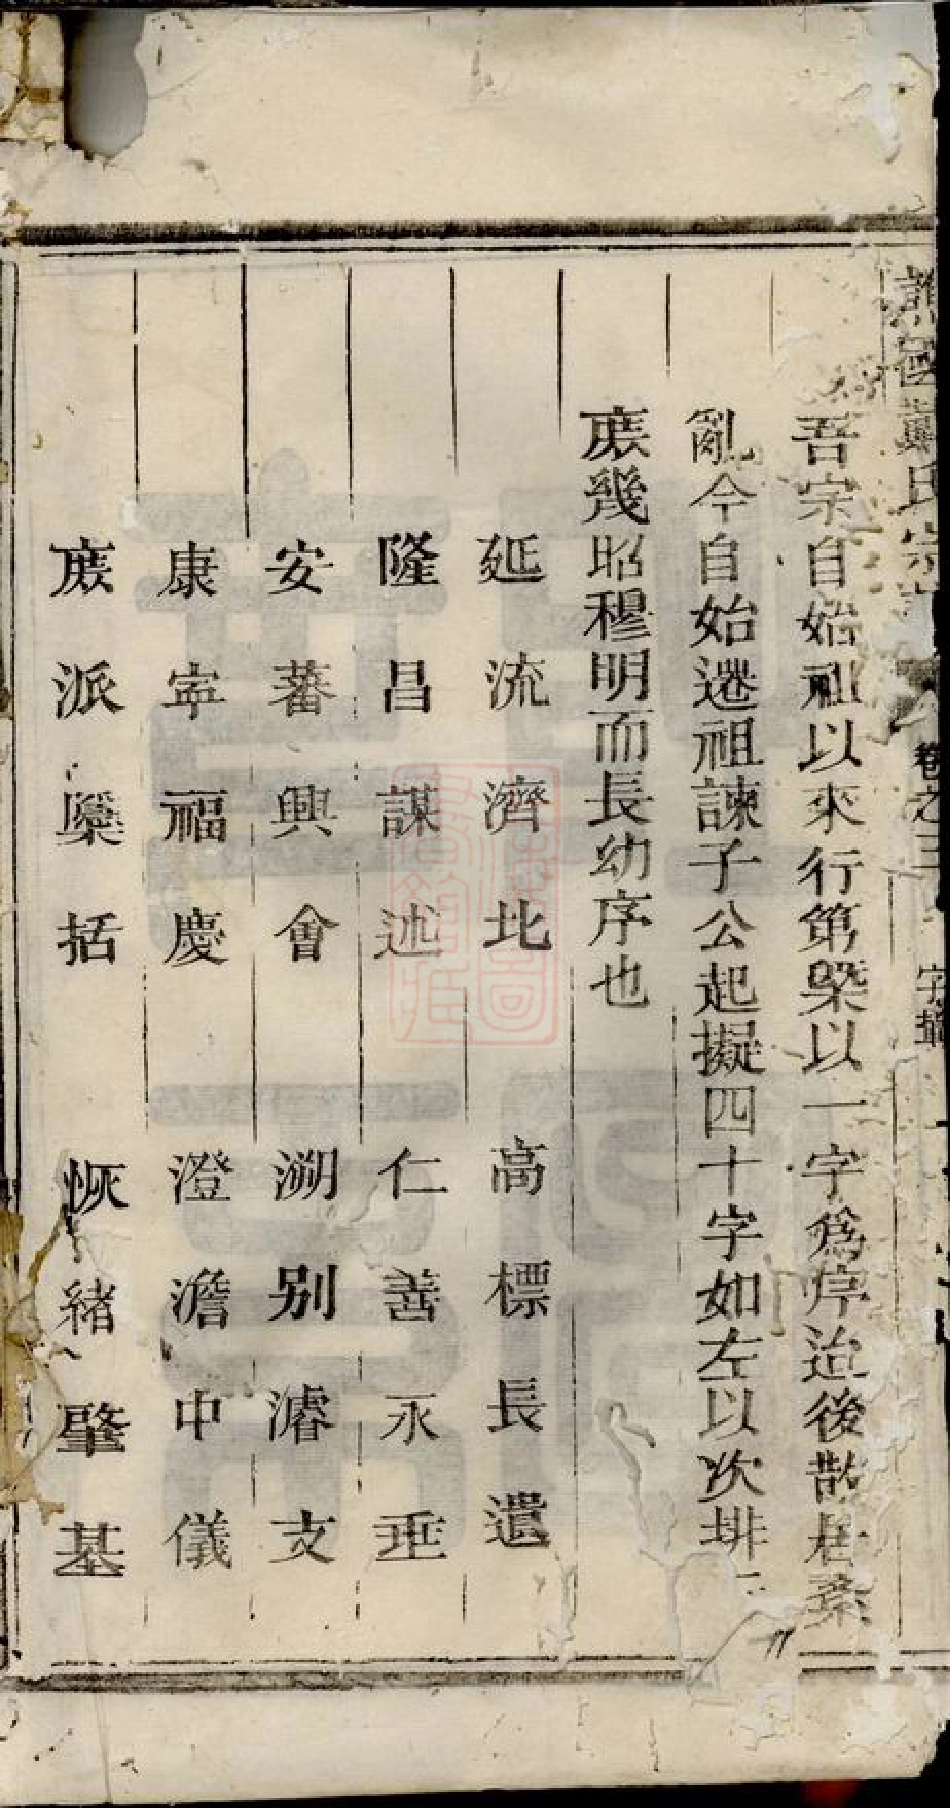 譙國戴氏宗 卷之三 字排 一
吾宗自始祖以來行第槩以一字爲序迨後散居紊
亂今自始遷祖諫子公起擬四十字如左以次排
庶幾昭穆明而長幼序也
延流濟北 高標長遺
隆昌謀述 仁善永垂
安蕃興會 溯别濬支
康寧福慶 澄澹中儀
庶派檃括 恢緒肇基